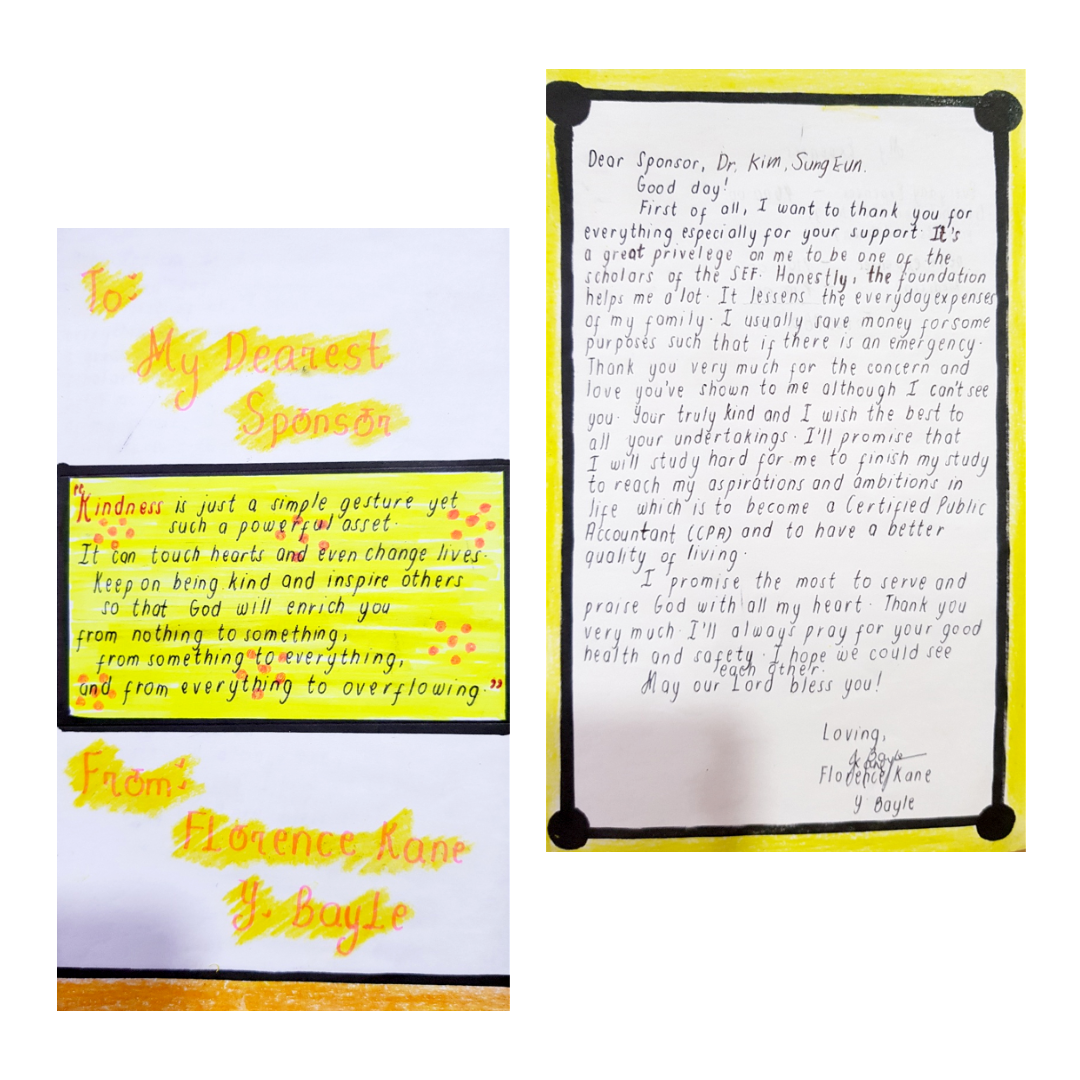 To:
My Dearest
Sponsor
"Kindness is just a simple gesture yet
such a powerful asset.
It can touch hearts and even change lives.
Keep on being kind and inspire others
so that God will enrich you
from nothing to something,
from something to everything,
and from everything to overflowing."
From:
Florence Kane
Y. Bayle
Dear Sponsor, Dr. Kim, Sung Eun.
Good day!
First of all, I want to thank you for
everything especially for your support. It's
a great privelege on me to be one of the
scholars of the SEF. Honestly, the foundation
helps me a lot. It lessens the everyday expenses
of my family. I usually save money for some
purposes such that if there is an emergency.
Thank you very much for the concern and
love you've shown to me although I can't see
you. Your truly kind and I wish the best to
all your undertakings. I'll promise that
I will study hard for me to finish my study
to reach my aspirations and ambitions in
life which is to become a Certified Public
Accountant (CPA) and to have a better
quality of living.
I promise the most to serve and
praise God with all my heart. Thank you
very much. I'll always pray for your good
health and safety. I hope we could see
each other.
May our Lord bless you!
Loving,
Florence Kane
Y Bayle